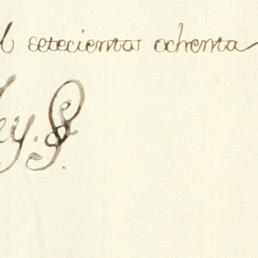 l setecientos ochenta
ey.